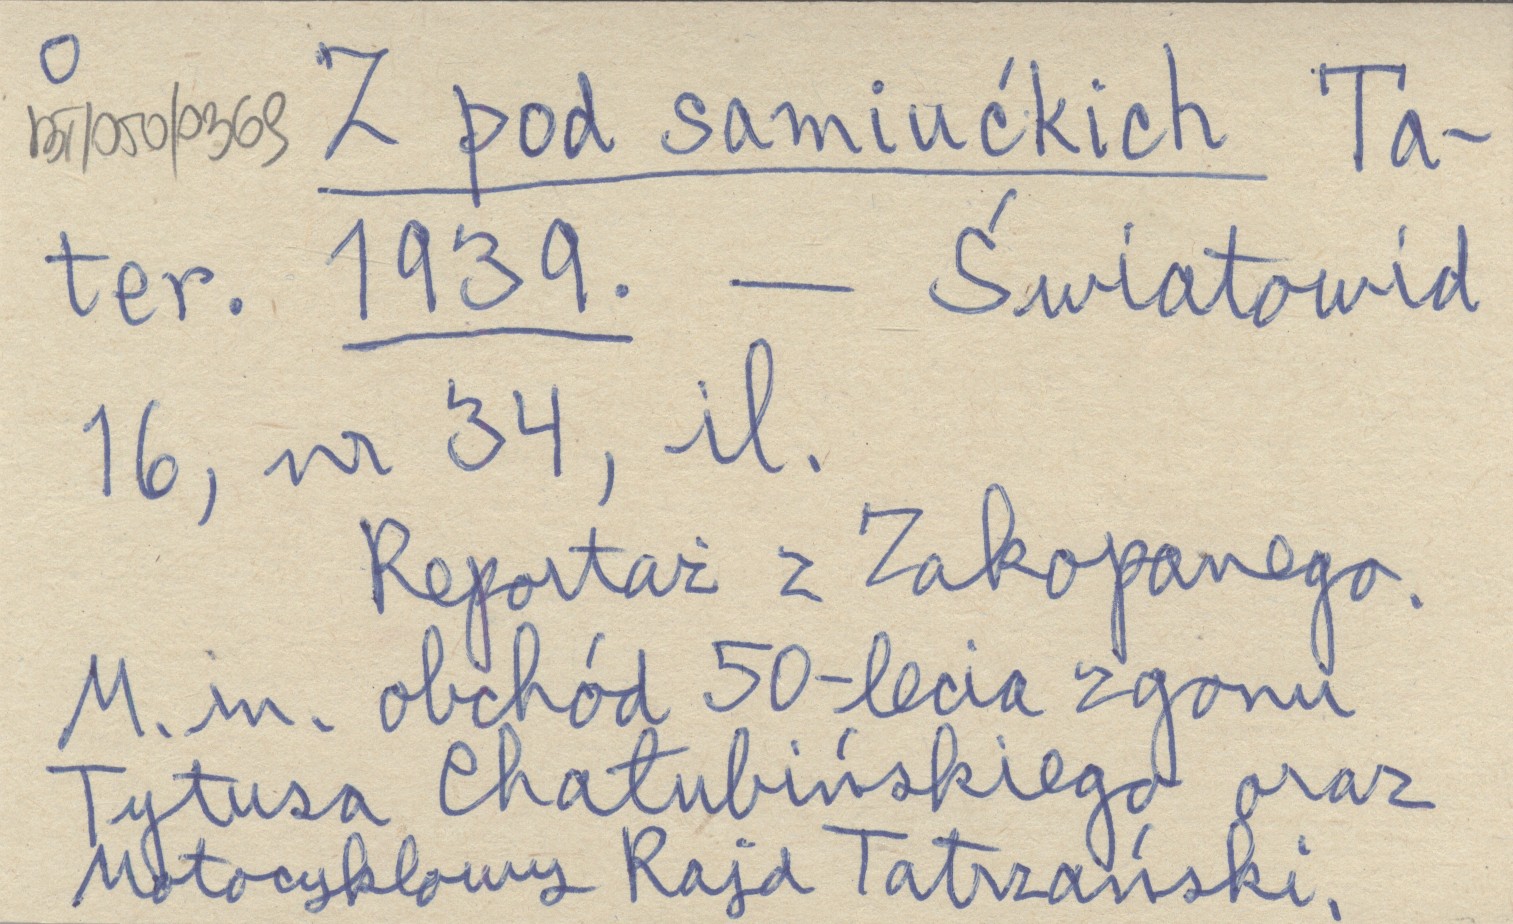 O
Z pod samiućkich Ta-
ter. 1939. — Światowid
16, nr 34, il.
Reportaż z Zakopanego.
M.in. obchód 50-lecia zgonu
Tytusa Chałubińskiego oraz
Motocyklowy Rajd Tatrzański.